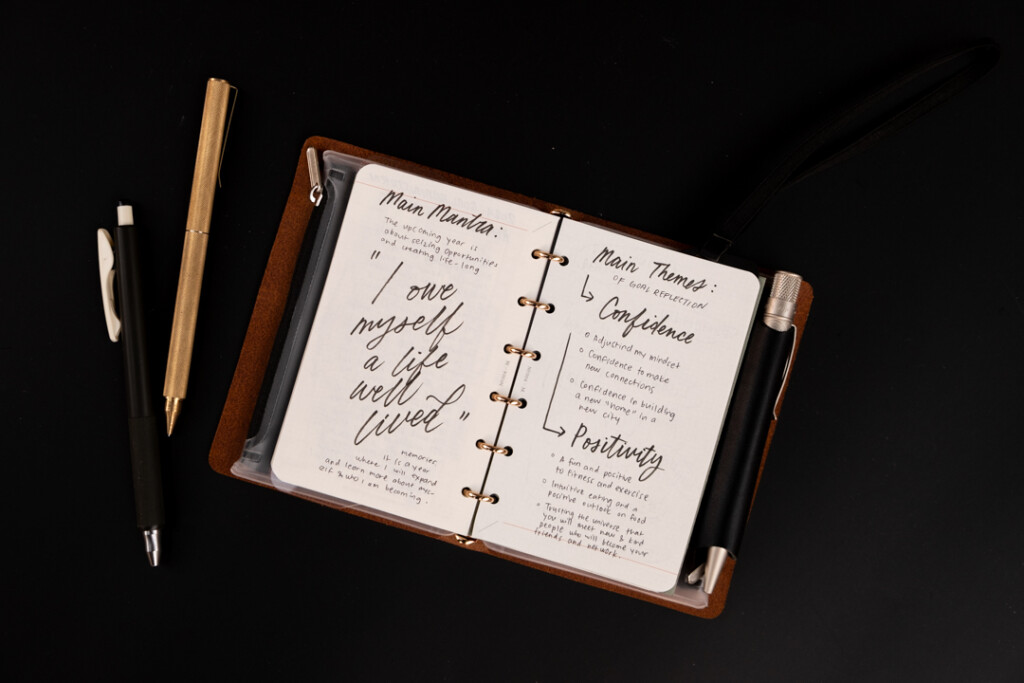 Main Mantra:
The upcoming year is
about seizing opportunities
and creating life-long
"I owe
myself
a life
well
lived"
memories
it is a year
where I will expand
and learn more about mys-
elf & who I am becoming.
Main Themes:
OF GOAL REFLECTION
Confidence
Adjusting my mindset
Confidence to make
new connections
Confidence in building
a new "home" in a
new city
Positivity
A fun and positive
to fitness and exercise
Intuitive eating and a
positive outlook on food
Trusting the universe that
you will meet new & kind
people who will become your
friends and network.